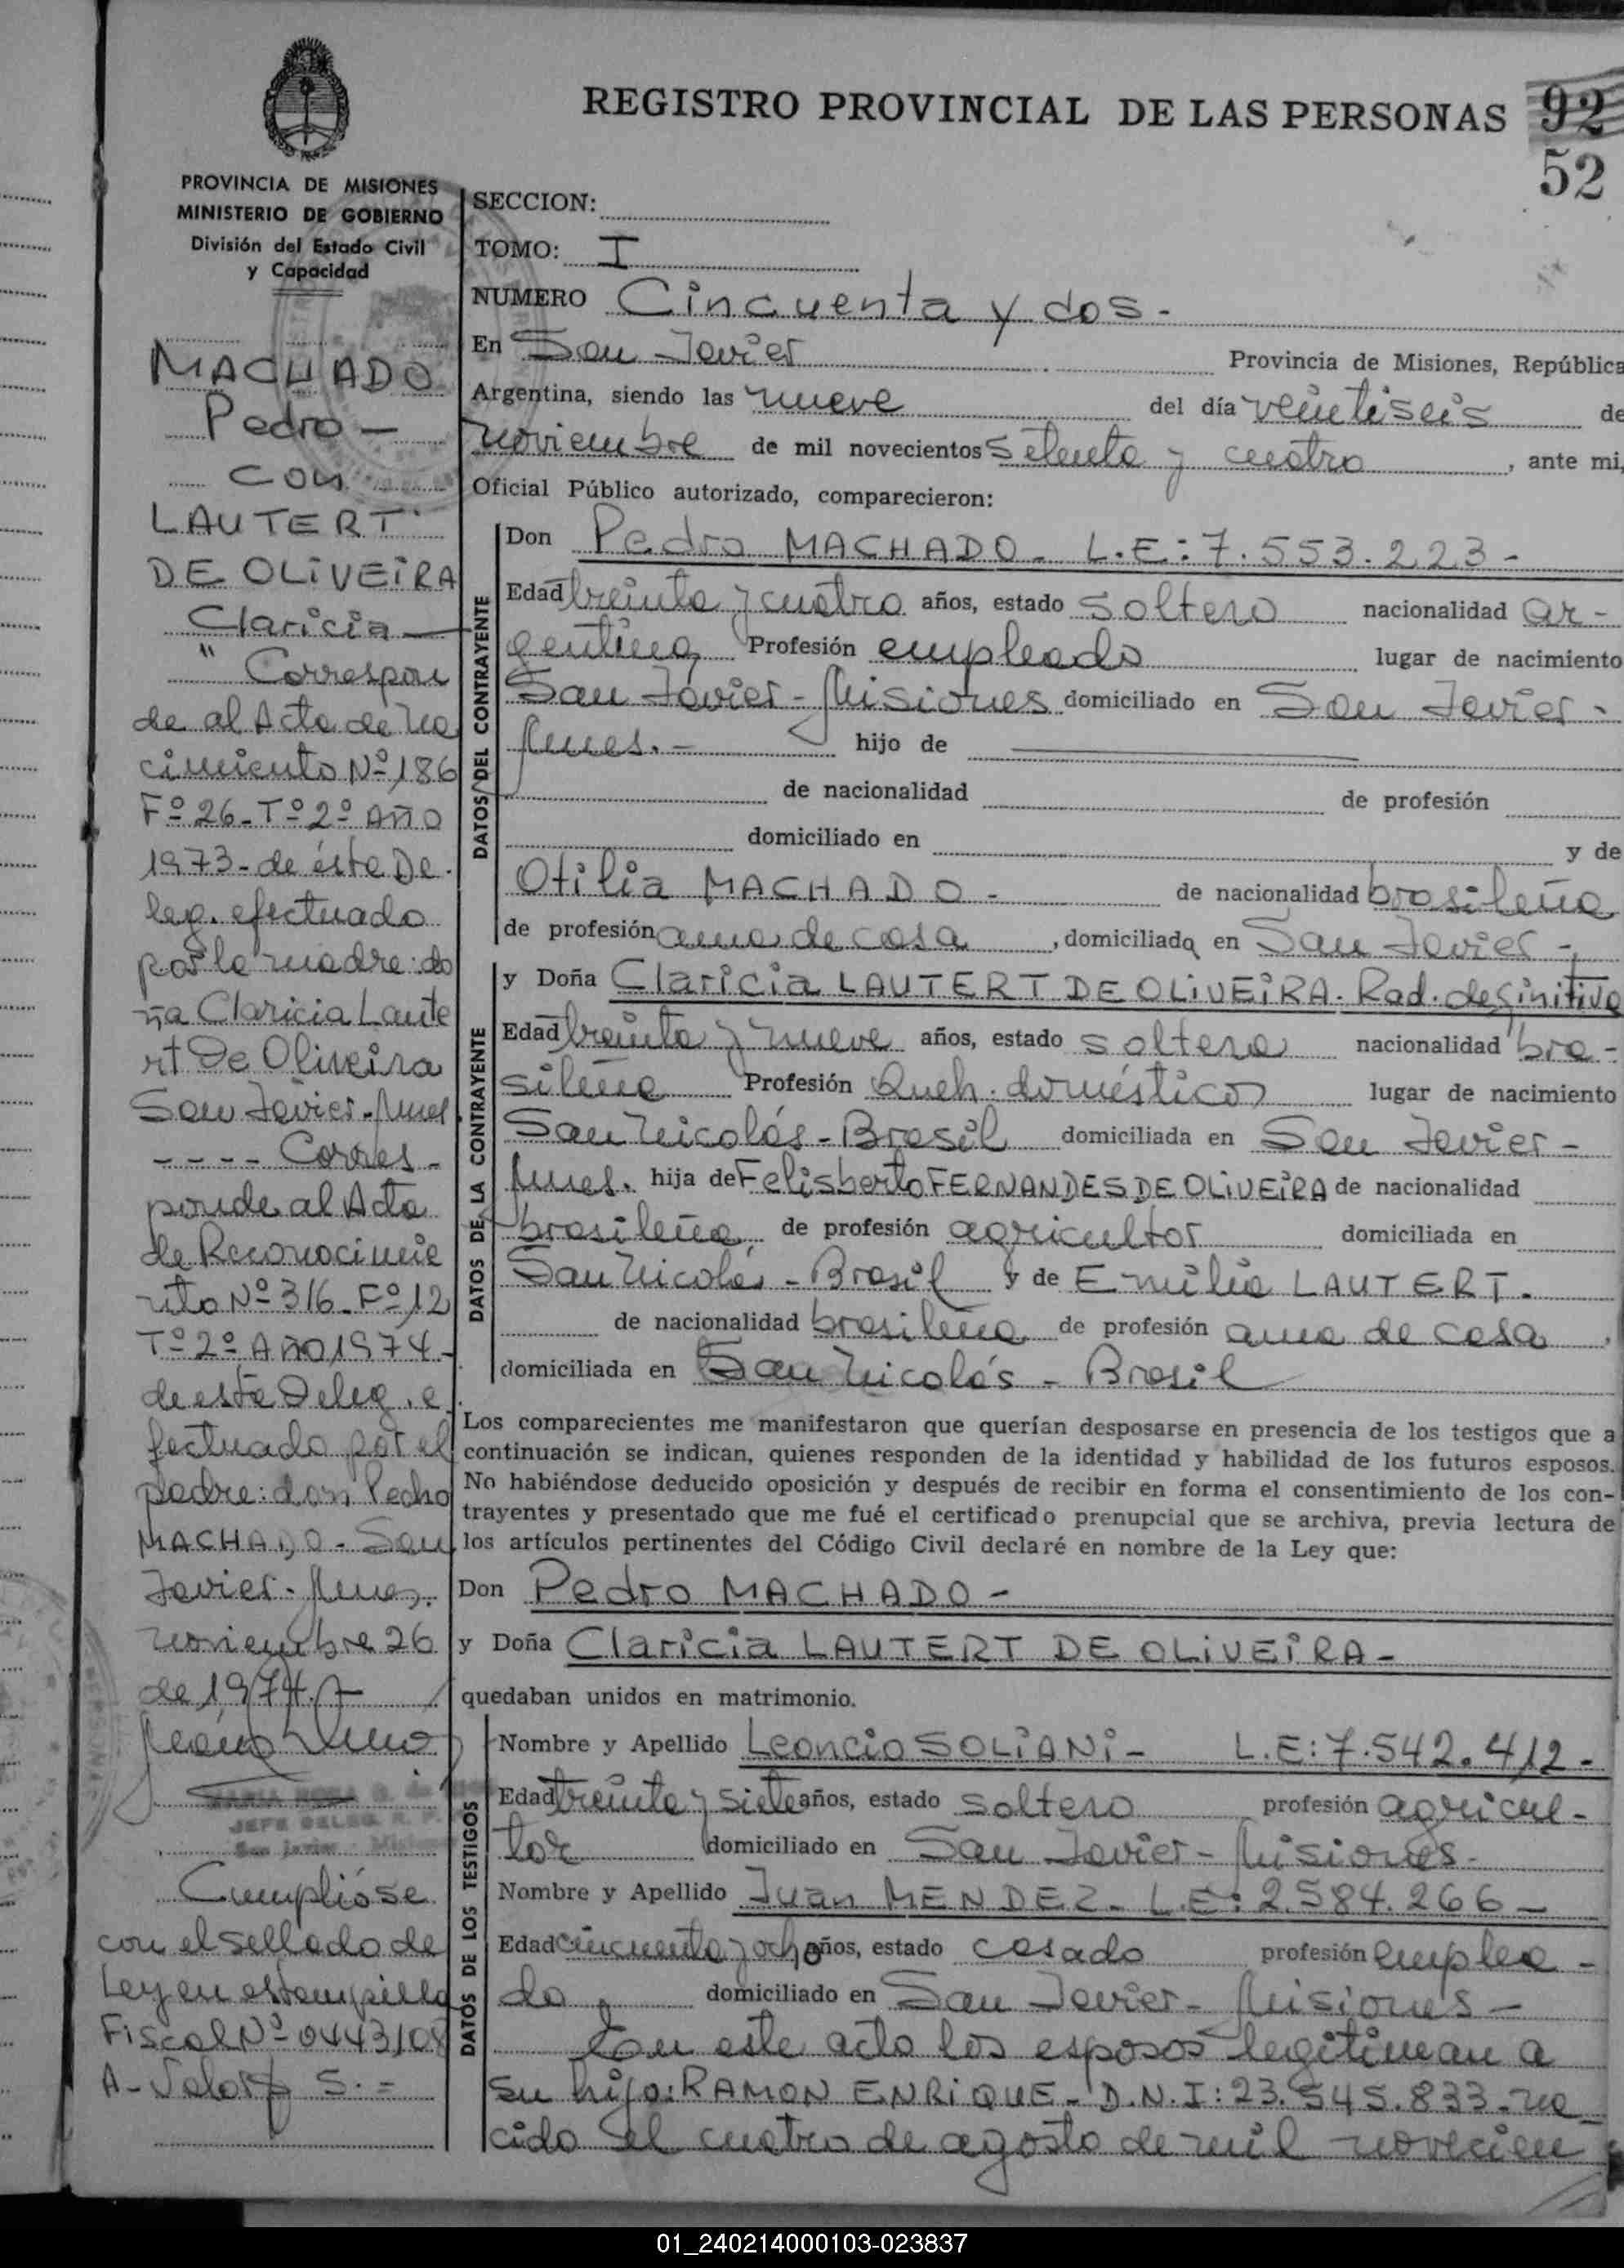 REGISTRO PROVINCIAL DE LAS PERSONAS
92
52
PROVINCIA DE MISIONES
MINISTERIO DE GOBIERNO
División del Estado Civil
y Capacidad
MACHADO
Pedro -
con
LAUTERT
DE OLIVEIRA
Claricia
" Correspon
de al Acta de Na
cimiento Nº 186
Fº 26 - Tº 2º Año
1973 - de ésta De
leg. efectuado
por la madre: do
ña Claricia Laute
rt De Oliveira
San Javier - Mnes
- - - - Corres -
ponde al Acta
de Reconocimie
nto Nº 316 - Fº 12
Tº 2º Año 1974 -
de esta Deleg. e
fectuado por el
padre: don Pedro
MACHADO - San
Javier - Mnes.
noviembre 26
de 1974.
JEFE DELEG. R. P.
San Javier - Misiones
Cumplióse
con el sellado de
Ley en estampilla
Fiscal Nº 0443108
A - Valor $ 5. =
SECCION:
TOMO: I
NUMERO Cincuenta y dos -
En San Javier Provincia de Misiones, República
Argentina, siendo las nueve del día veintiseis de
noviembre de mil novecientos setenta y cuatro, ante mi,
Oficial Público autorizado, comparecieron:
DATOS DEL CONTRAYENTE
Don Pedro MACHADO - L.E: 7.553.223 -
Edad treinta y cuatro años, estado soltero nacionalidad ar-
gentina Profesión empleado lugar de nacimiento
San Javier - Misiones domiciliado en San Javier -
Mnes. - hijo de
de nacionalidad de profesión
domiciliado en y de
Otilia MACHADO - de nacionalidad brasileña
de profesión ama de casa, domiciliada en San Javier -
DATOS DE LA CONTRAYENTE
y Doña Claricia LAUTERT DE OLIVEIRA. Rad. definitiva
Edad treinta y nueve años, estado soltera nacionalidad bra-
sileña Profesión Queh. domésticos lugar de nacimiento
San Nicolás - Brasil domiciliada en San Javier -
Mnes. hija de Felisberto FERNANDES DE OLIVEIRA de nacionalidad
brasileña de profesión agricultor domiciliada en
San Nicolás - Brasil y de Emilia LAUTERT.
de nacionalidad brasileña de profesión ama de casa
domiciliada en San Nicolás - Brasil
Los comparecientes me manifestaron que querían desposarse en presencia de los testigos que a
continuación se indican, quienes responden de la identidad y habilidad de los futuros esposos.
No habiéndose deducido oposición y después de recibir en forma el consentimiento de los con-
trayentes y presentado que me fué el certificado prenupcial que se archiva, previa lectura de
los artículos pertinentes del Código Civil declaré en nombre de la Ley que:
Don Pedro MACHADO -
y Doña Claricia LAUTERT DE OLIVEIRA -
quedaban unidos en matrimonio.
DATOS DE LOS TESTIGOS
Nombre y Apellido Leoncio SOLIANI - L.E: 7.542.412 -
Edad treinta y siete años, estado soltero profesión agricul-
tor domiciliado en San Javier - Misiones -
Nombre y Apellido Juan MENDEZ - L.E: 2.584.266 -
Edad cincuenta y ocho años, estado casado profesión emplea-
do, domiciliado en San Javier - Misiones -
En este acto los esposos legitiman a
su hijo: RAMON ENRIQUE - D.N.I: 23.545.833 - na-
cido el cuatro de agosto de mil novecien
01_240214000103-023837